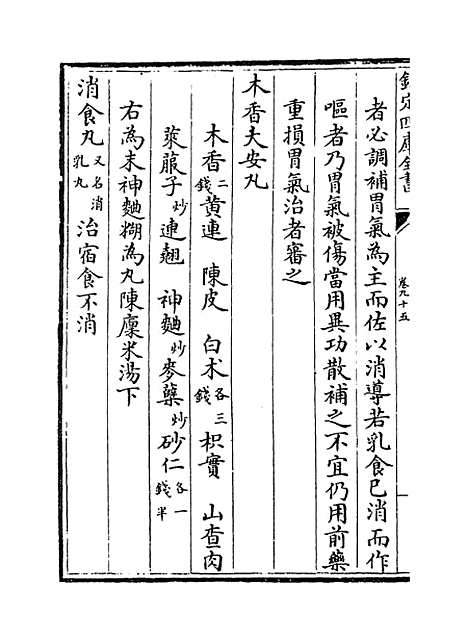 欽定四庫全書
卷九十五
者必調補胃氣為主而佐以消導若乳食已消而作
嘔者乃胃氣被傷當用異功散補之不宜仍用前藥
重損胃氣治者審之
木香大安丸
木香二錢黄連 陳皮 白术各三錢枳實 山查肉
萊菔子炒連翹 神麯炒麥蘖炒砂仁各一錢半
右為末神麯糊為丸陳廩米湯下
消食丸又名消乳丸治宿食不消